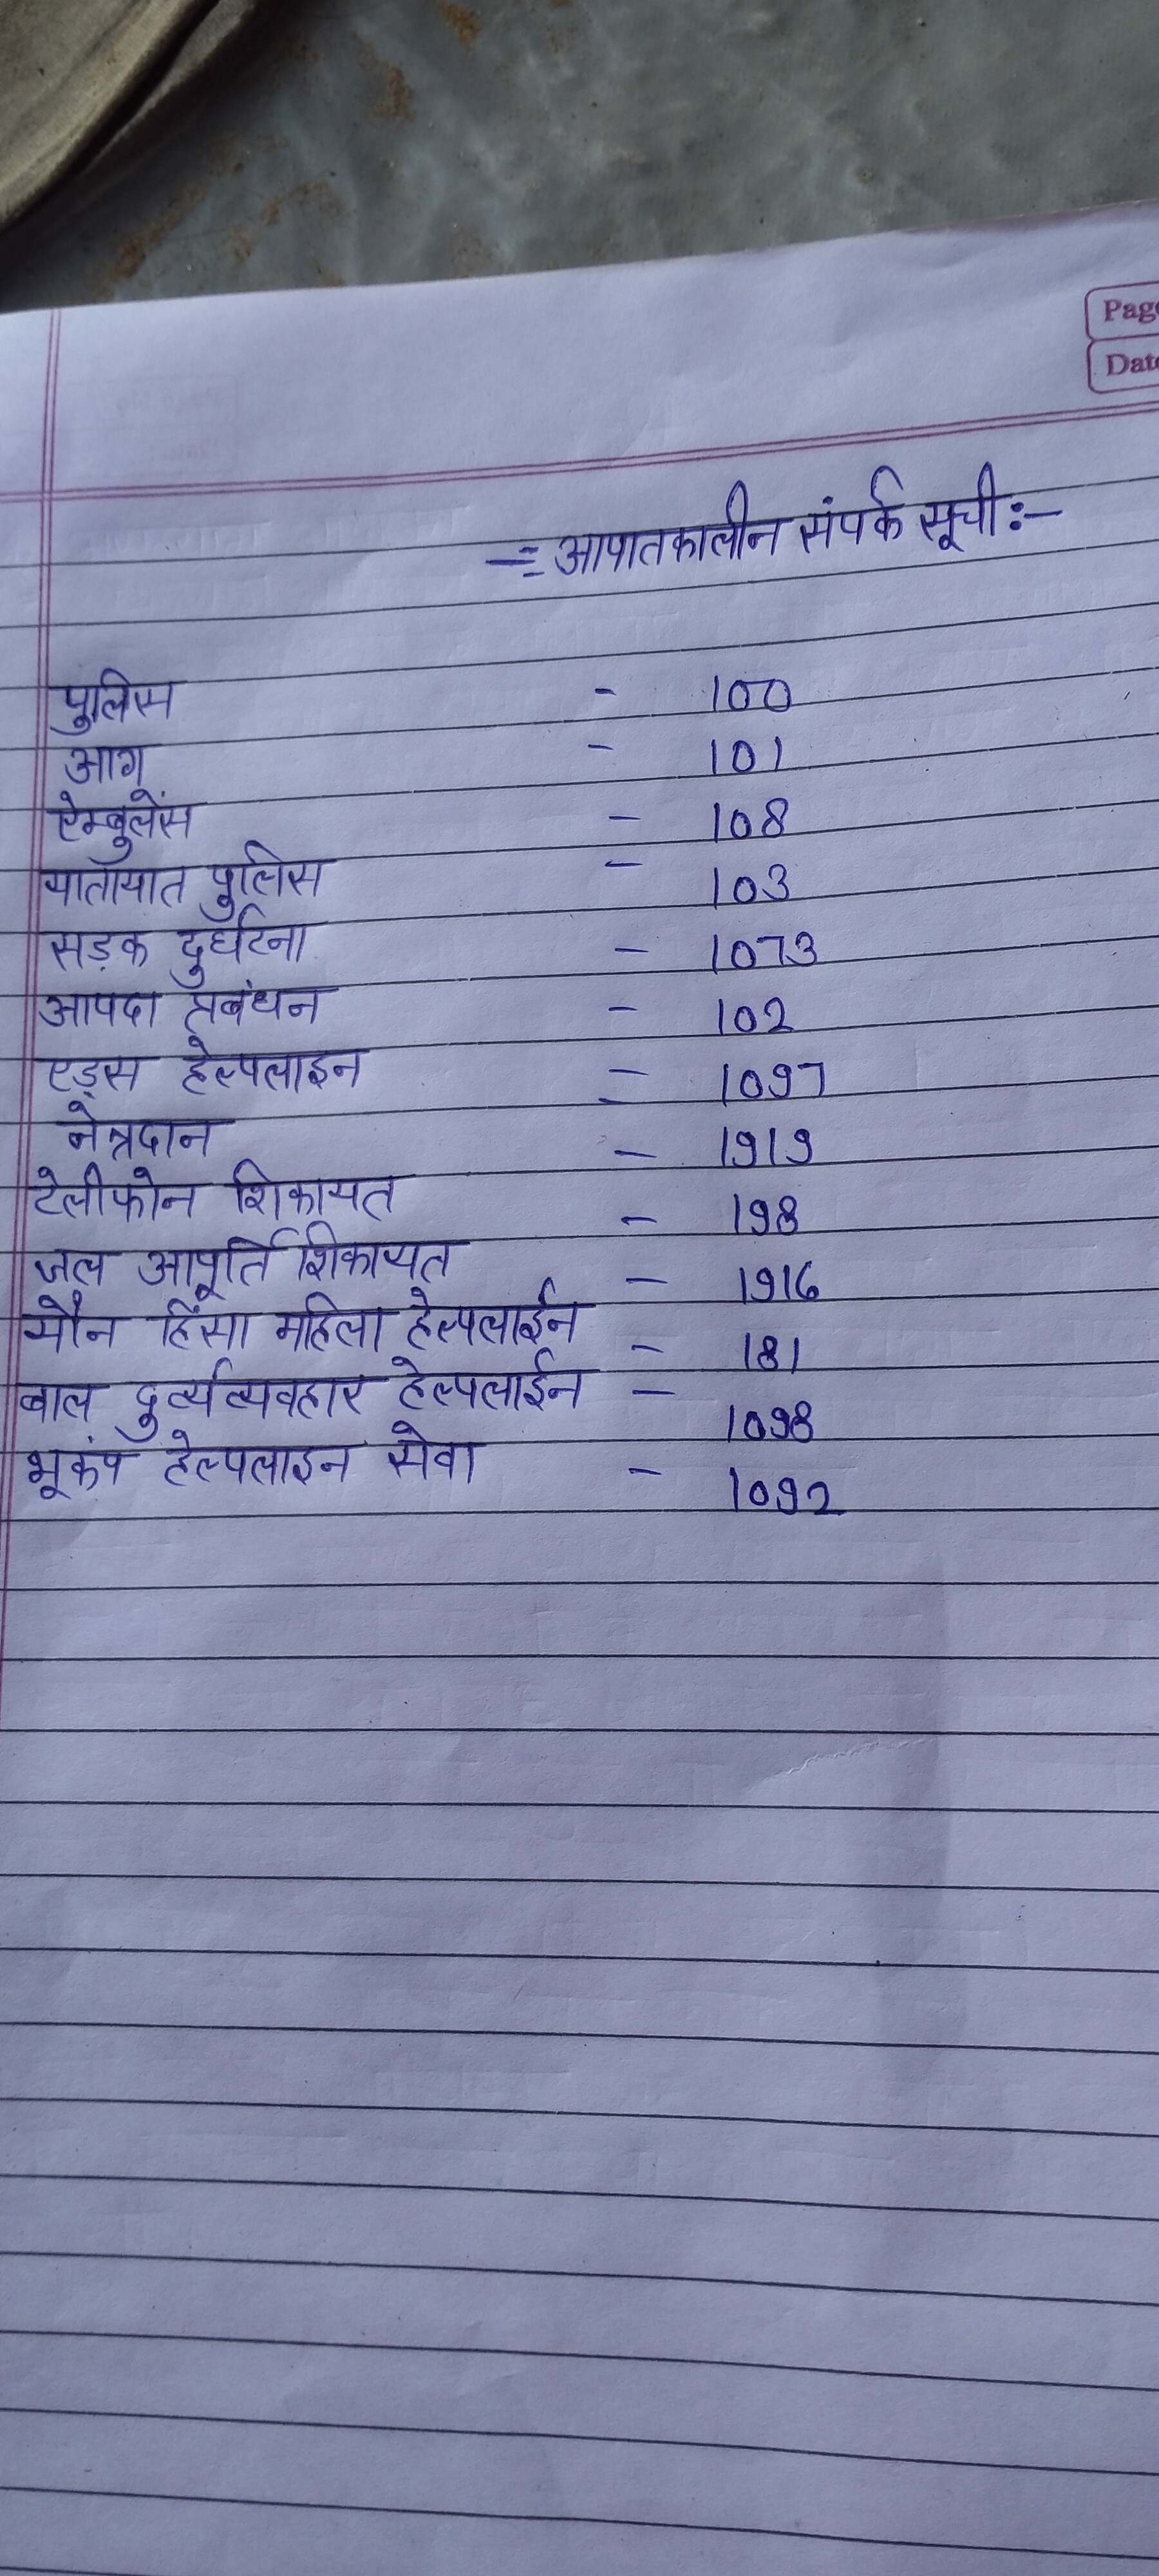 Page
Date
-:= आपातकालीन संपर्क सूची :-
पुलिस - 100
आग - 101
ऐम्बुलेंस - 108
यातायात पुलिस - 103
सड़क दुर्घटना - 1073
आपदा प्रबंधन - 102
एड्स हेल्पलाइन - 1097
नेत्रदान - 1919
टेलीफोन शिकायत - 198
जल आपूर्ति शिकायत - 1916
यौन हिंसा महिला हेल्पलाईन - 181
बाल दुर्व्यव्यवहार हेल्पलाईन - 1098
भूकंप हेल्पलाइन सेवा - 1092